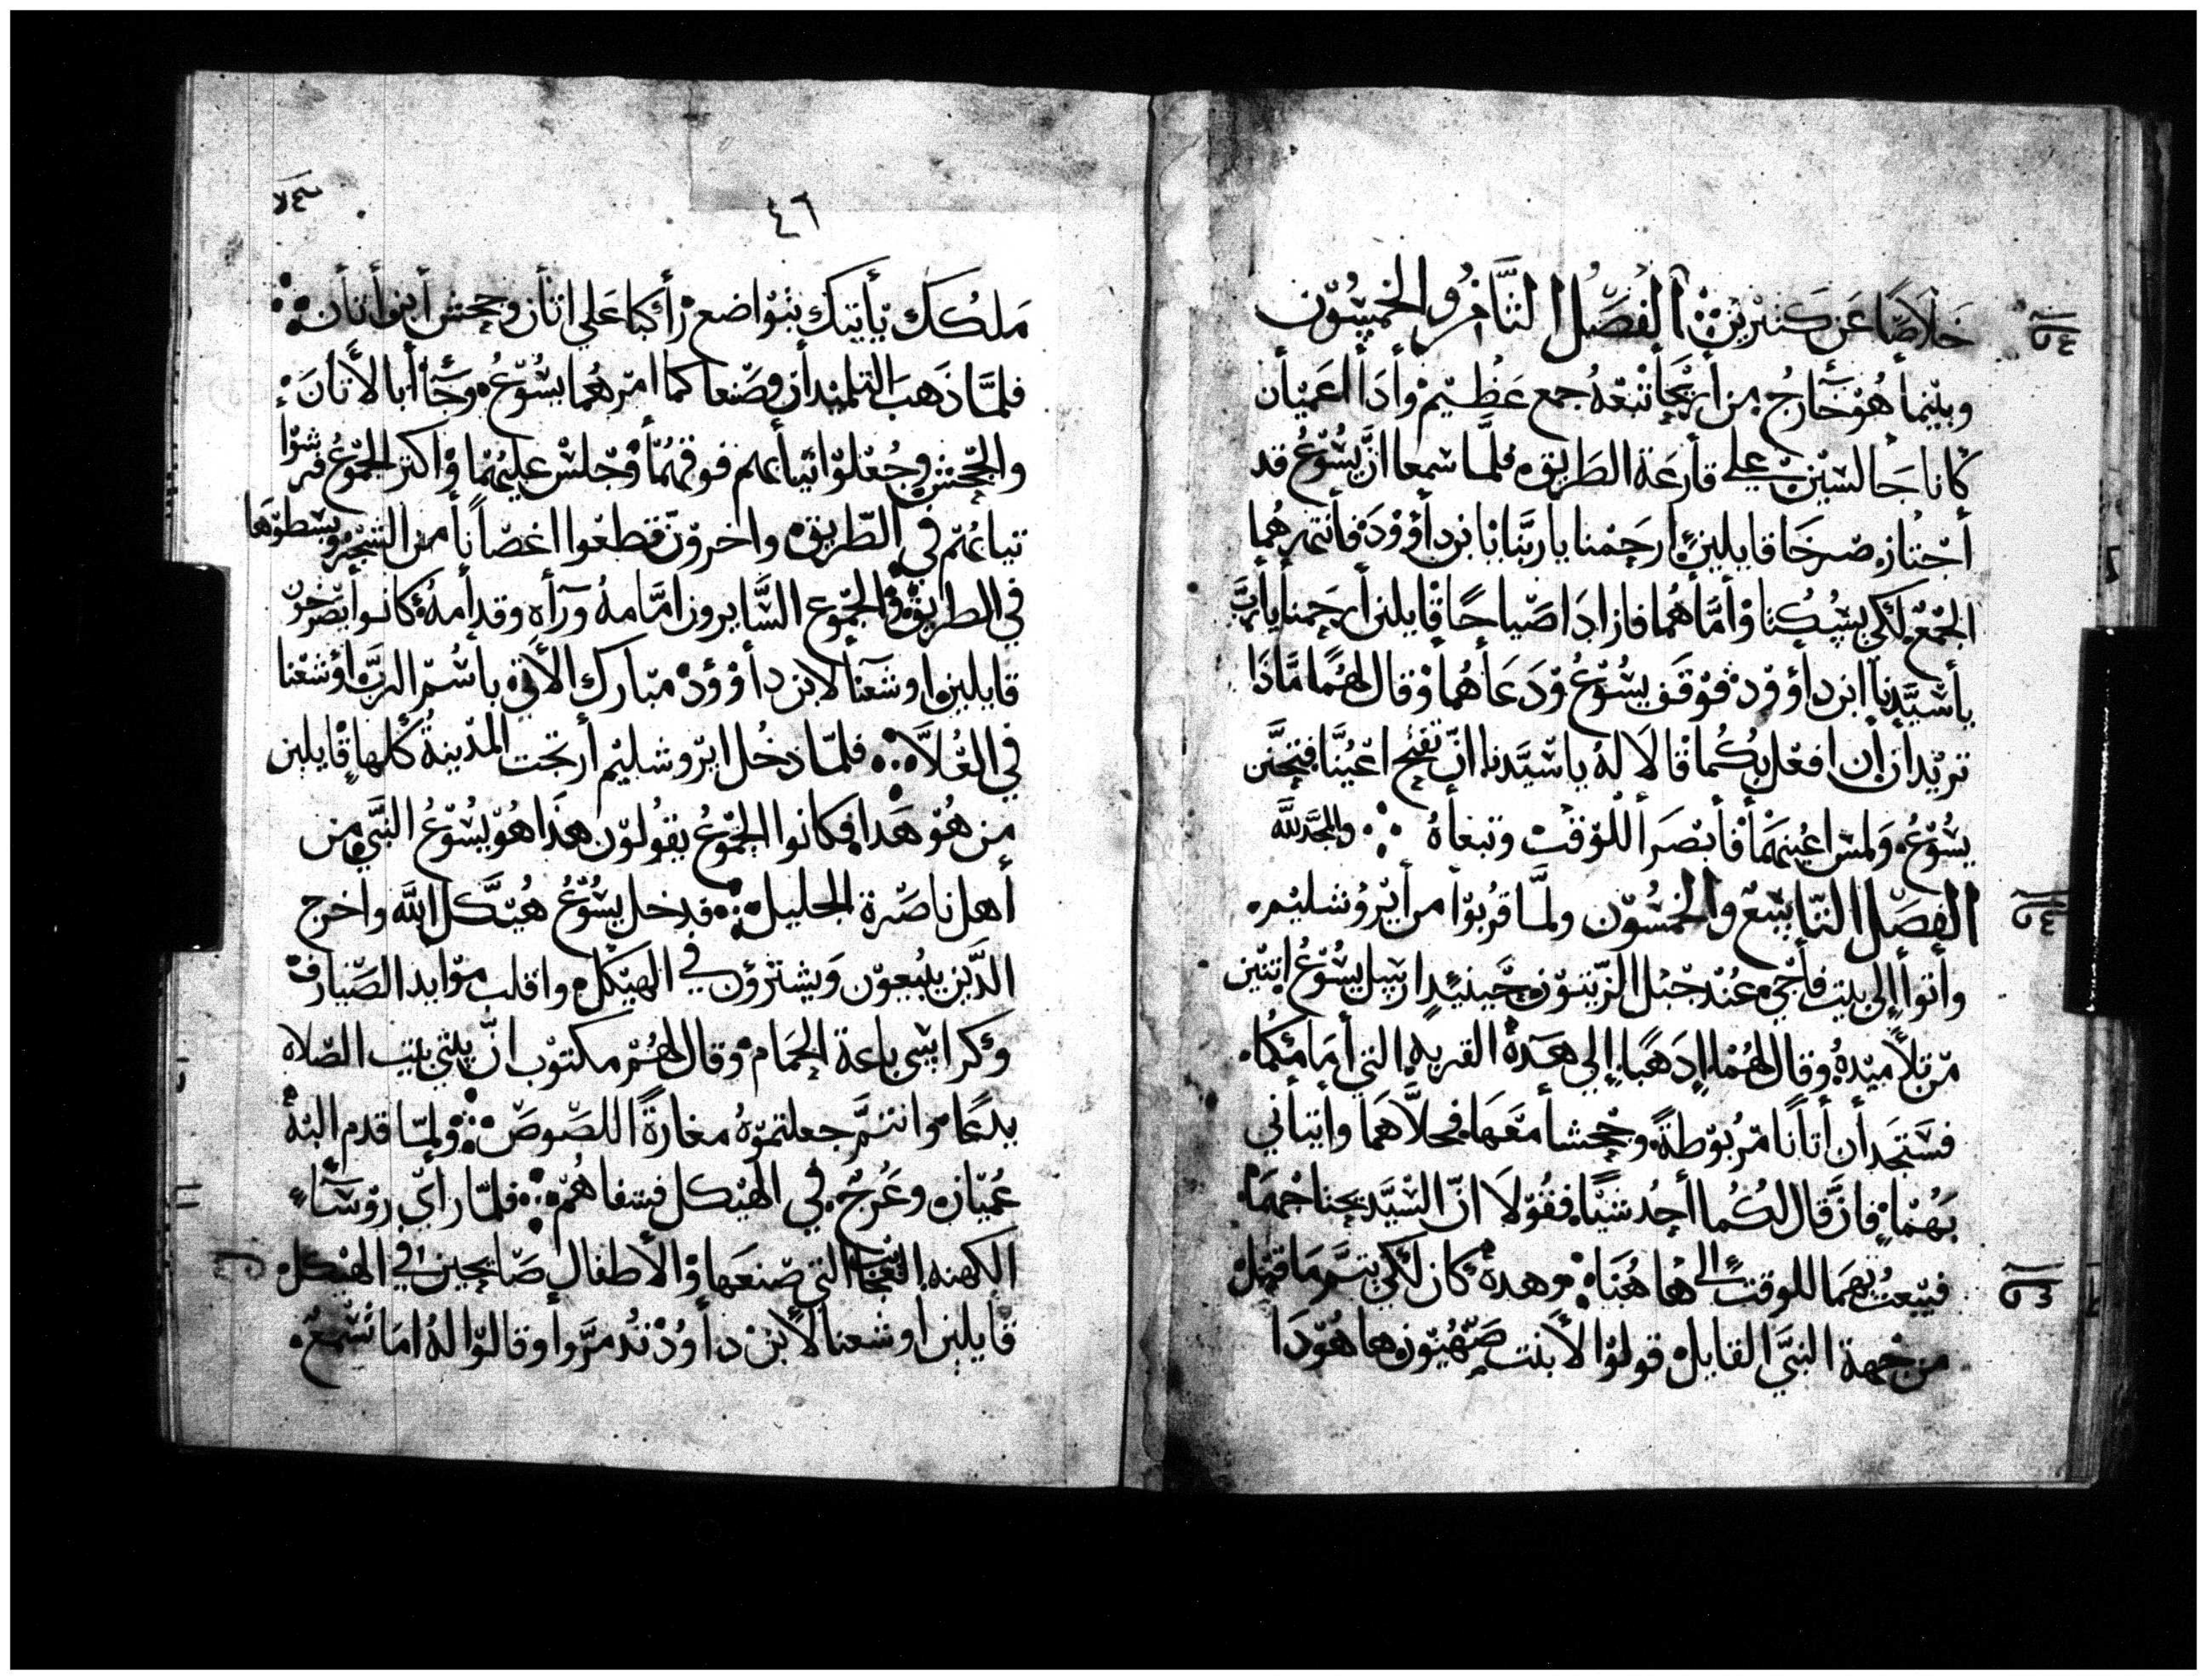 خَلاَصًا عَن كَتيرين ⁘ اَلفَصْل التَّامِن والخمسُون
وبينما هُو خَارجُ من أريحَا تبعَهُ جمع عَظيم وأدَا اعميأن
كانا جَالسَين علي قارعَة الطَريق فلمَّا سَمعا انَّ يسُوعُ قد
أجتاز صرخَا قايلين ارحَمنا ياربَّنا يابن دأوود فأنتهرهُما
الجمعُ لكي يسكُتا وأمَّا هُمَا فازادَا صَياحًا قايلين أرحَمنا يأربَّ
يأسيَّدنا ابن دأوود فوقَف يسُوعُ ودَعَأهُما وقال لهُما مَّادَا
تريدان أن افعَل بكُما قالا لهُ ياسَيَّدنا انّ تفتح اعيُنَّا فتحَنَّن
يسُوعُ ولمس اعينهَمَا فأبصَرا للوقت وتبعأهُ ⁘ والمجَد للَّه
الفصَل التاسع والخمسُون ولمَّا قربُوا من أيرُوشليم
وأتوا إلي بيت فأجي عنُد جَبل الزيتون حَينيدٍ ارسل يسُوعُ اتنين
من تلاميدهُ وقال لهُما ادهَبا إلي هَدهُ القريه التي أمَامكُما
فستجدَأن أتانًا مرُبوطة وجحشا معَهَا فحلاَّهمَا وأتيأني
بهُما فان قال لكُما أحدُ شيًا فقولا انّ السَّيَّد يحتاجُهمَا
فيبعتُ بهمَا للوقت الي هاهُنَا وهدهُ كان لكي يتمَّ ما قيل
من جهة النبَّي القايل قولوا لأبنت صَهُيون ها هُودَا
٤٦
مَلكُكِ يأتيكِ بتواضع رأكبا عَلي اتأن وجحش أبن أتأن ⁘
فلمَّا ذهَبَ التلميدأن وصَنعا كما امرهُما يسُوعُ وجَاأ أبا لأتانَ
والجحش وجُعلوا تيأبهم فوقهُمَا وجَلس عليهُمَا واكتر الجموعُ فرشوا
تيابهُم في الطريق واخرون قطعُوا اغصَانًا من الشجر وبسَطوهَا
في الطريق والجمُوع السَّايرون امَّامهُ ورأه وقدأمهُ كانوا يصَرخون
قايلين اوشعَنا لابن دأوود مبَارك الأتي باسُم الربَّ اوشعَنا
في العُلاَ ⁘ فلمّا دخُل ايروشليم أرتجت المدينةُ كلها قايلين
من هُو هَدا فكانوا الجموعُ يقولون هدَا هُو يسُوعُ النبَّي من
أهل ناصَرة الجليل ⁘ فدخل يسُوعُ هيَّكل اللَّه واخرج
الدَّين يبيعون ويشترون في الهيكل واقلب موايد الصَيارف
وكراسَي باعة الحمَام وقال لهُم مكتوب انَّ بيتي بيت الصَلاه
يدعَا وانتم جعلتموهُ مغارةً اللصُوصَ ⁘ ولمّا قدم اليهُ
عُميَان وعُرجُ في الهيكل فشفاهُم ⁘ فلمّا رأي روسَاء
الكهنه التي صَنعَها والأطفال صَايحين في الهيكل
قايلين اوشعنا لأبن دأوُد تدمرَّوا وقالوا لهُ امَا تسَمعُ